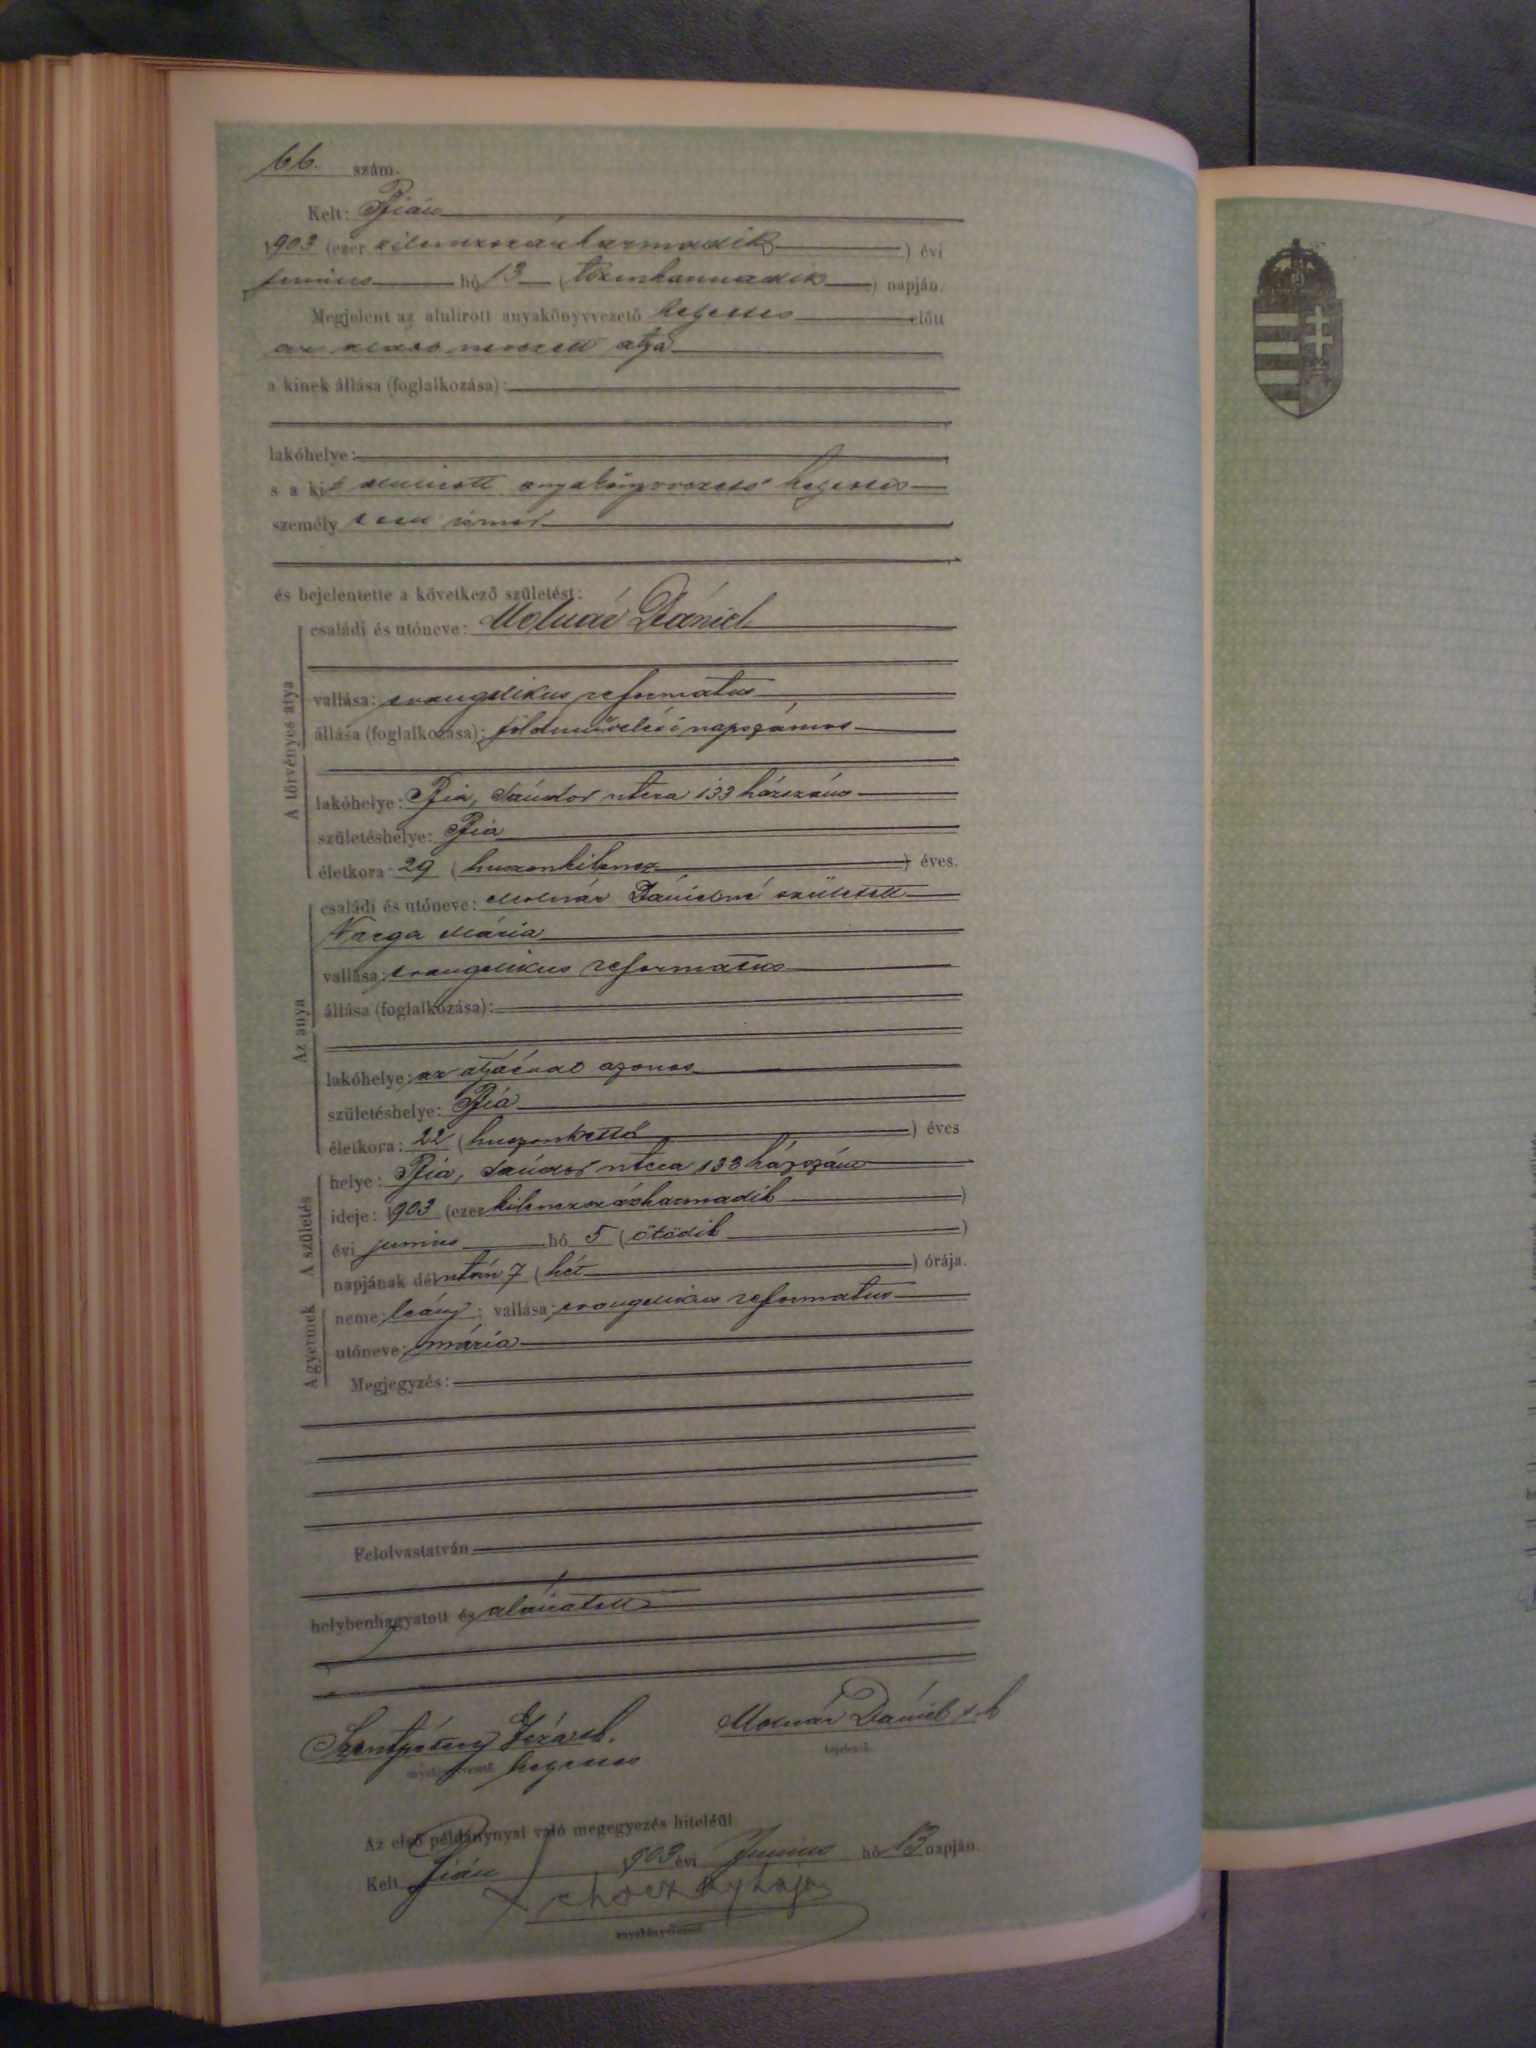 66. szám.
Kelt: Bián
1903 (ezer kilenczszázharmadik) évi
junius hó 13 (tizenharmadik) napján.
Megjelent az alulirott anyakönyvvezető helyettes előtt
az alább nevezett atya
a kinek állása (foglalkozása):
lakóhelye:
s a kit alulirott anyakönyvvezető helyettes
személy
és bejelentette a következő születést:
A törvényes atya
családi és utóneve: Molnár Dániel
vallása: evangelikus reformatus
állása (foglalkozása): földmüvelési napszámos
lakóhelye: Bia, Sándor utcza 133 házszám
születéshelye: Bia
életkora: 29 (huszonkilencz) éves.
Az anya
családi és utóneve: Molnár Dánielné született
Varga Mária
vallása: evangelikus reformatus
állása (foglalkozása):
lakóhelye: az atyáéval azonos
születéshelye: Bia
életkora: 22 (huszonkettő) éves
A születés
helye: Bia, Sándor utcza 133 házszám
ideje: 1903 (ezer kilenczszázharmadik)
évi junius hó 5 (ötödik)
napjának délután 7 (hét) órája.
A gyermek
neme: leány; vallása: evangelikus reformatus
utóneve: Mária
Megjegyzés:
Felolvastatván
helybenhagyatott és aláiratott
Szentpétery Géza
helyettes
anyakönyvvezető.
Molnár Dániel s k
bejelentő.
Az első példánynyal való megegyezés hiteléül.
Kelt Bián 1903 évi Junius hó 13 napján.
anyakönyvvezető.